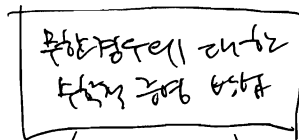 무한경우에 대한
수학적 증명 방법